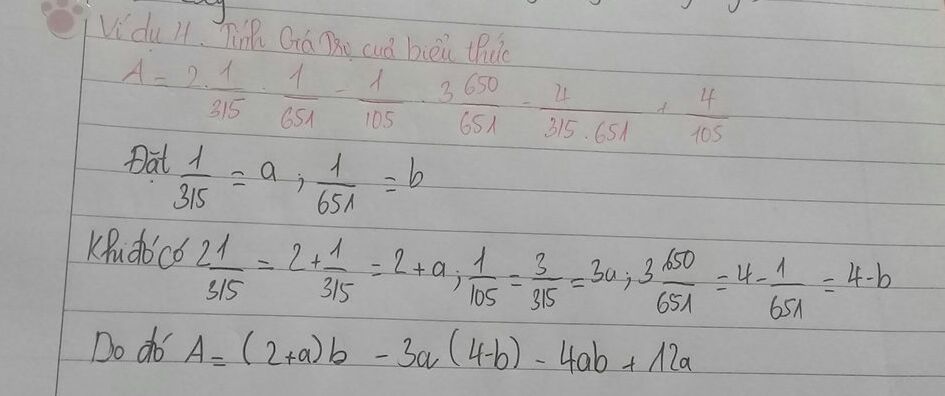 Ví dụ 4. Tính Giá Trị cuả biểu thức
A = 2 1/315 . 1/651 - 1/105 . 3 650/651 - 4/315.651 + 4/105
Đặt 1/315 = a ; 1/651 = b
Khi đó có 2 1/315 = 2 + 1/315 = 2 + a ; 1/105 = 3/315 = 3a ; 3 650/651 = 4 - 1/651 = 4 - b
Do đó A = (2+a)b - 3a(4-b) - 4ab + 12a